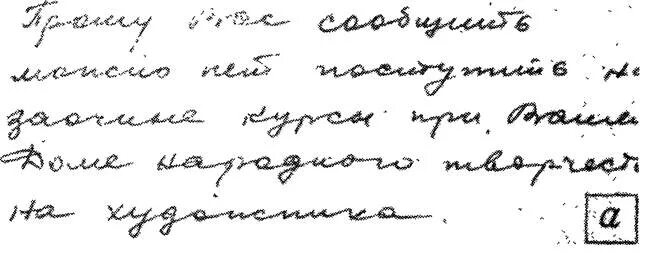 Прошу Вас сообщить
можно нет поступить на
заочные курсы при Вашем
Доме народного творчест
на художника.
а